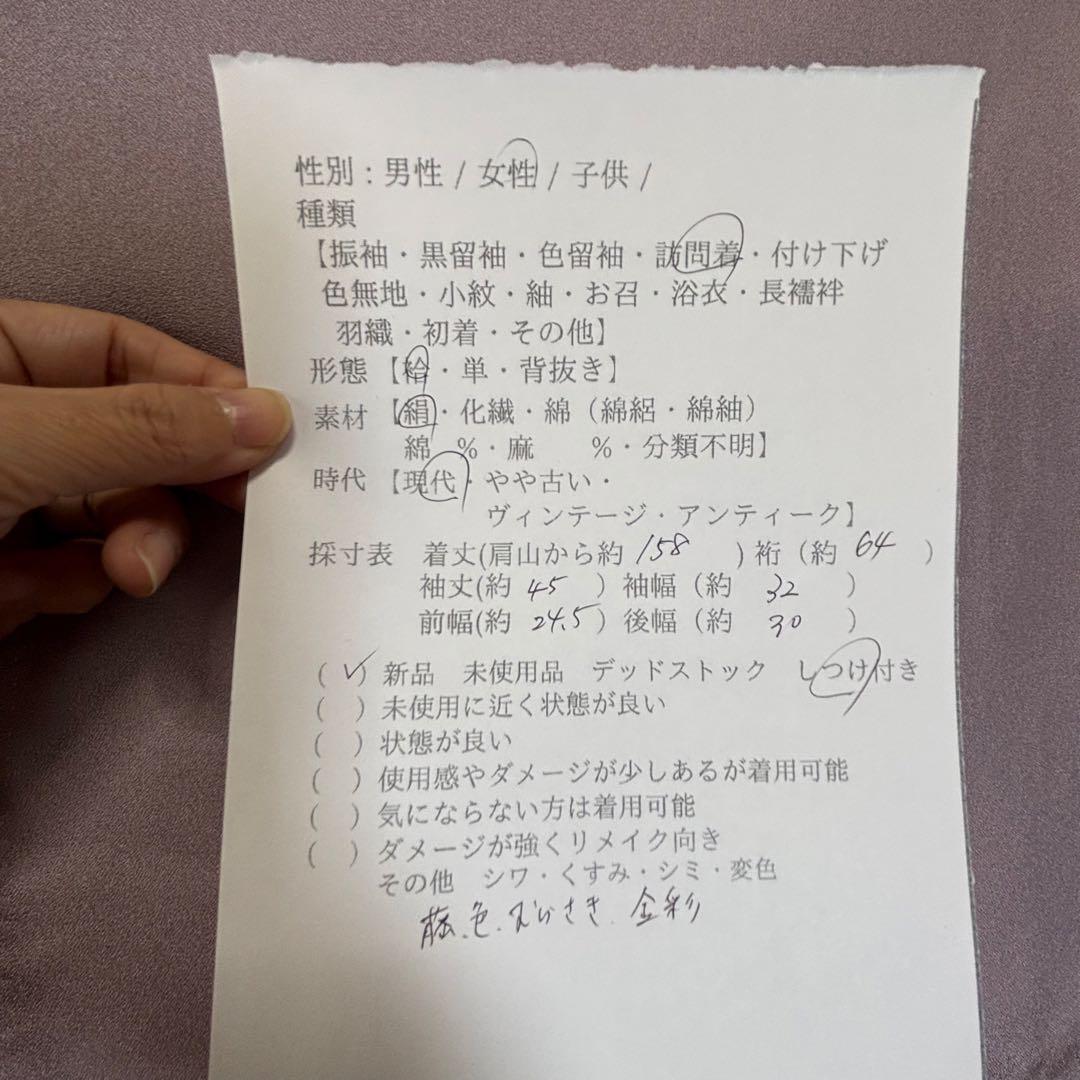 性別：男性 / 女性 / 子供 /
種類
【振袖・黒留袖・色留袖・訪問着・付け下げ
色無地・小紋・紬・お召・浴衣・長襦袢
羽織・初着・その他】
形態 【袷・単・背抜き】
素材 【絹・化繊・綿（綿絽・綿紬）
綿 %・麻 %・分類不明】
時代 【現代・やや古い・
ヴィンテージ・アンティーク】
採寸表 着丈(肩山から約 158 ) 裄（約 64 ）
袖丈(約 45 ）袖幅（約 32 ）
前幅(約 24.5 ）後幅（約 30 ）
( ✓ ) 新品 未使用品 デッドストック しつけ付き
( ) 未使用に近く状態が良い
( ) 状態が良い
( ) 使用感やダメージが少しあるが着用可能
( ) 気にならない方は着用可能
( ) ダメージが強くリメイク向き
その他 シワ・くすみ・シミ・変色
藤色.むらさき.金彩